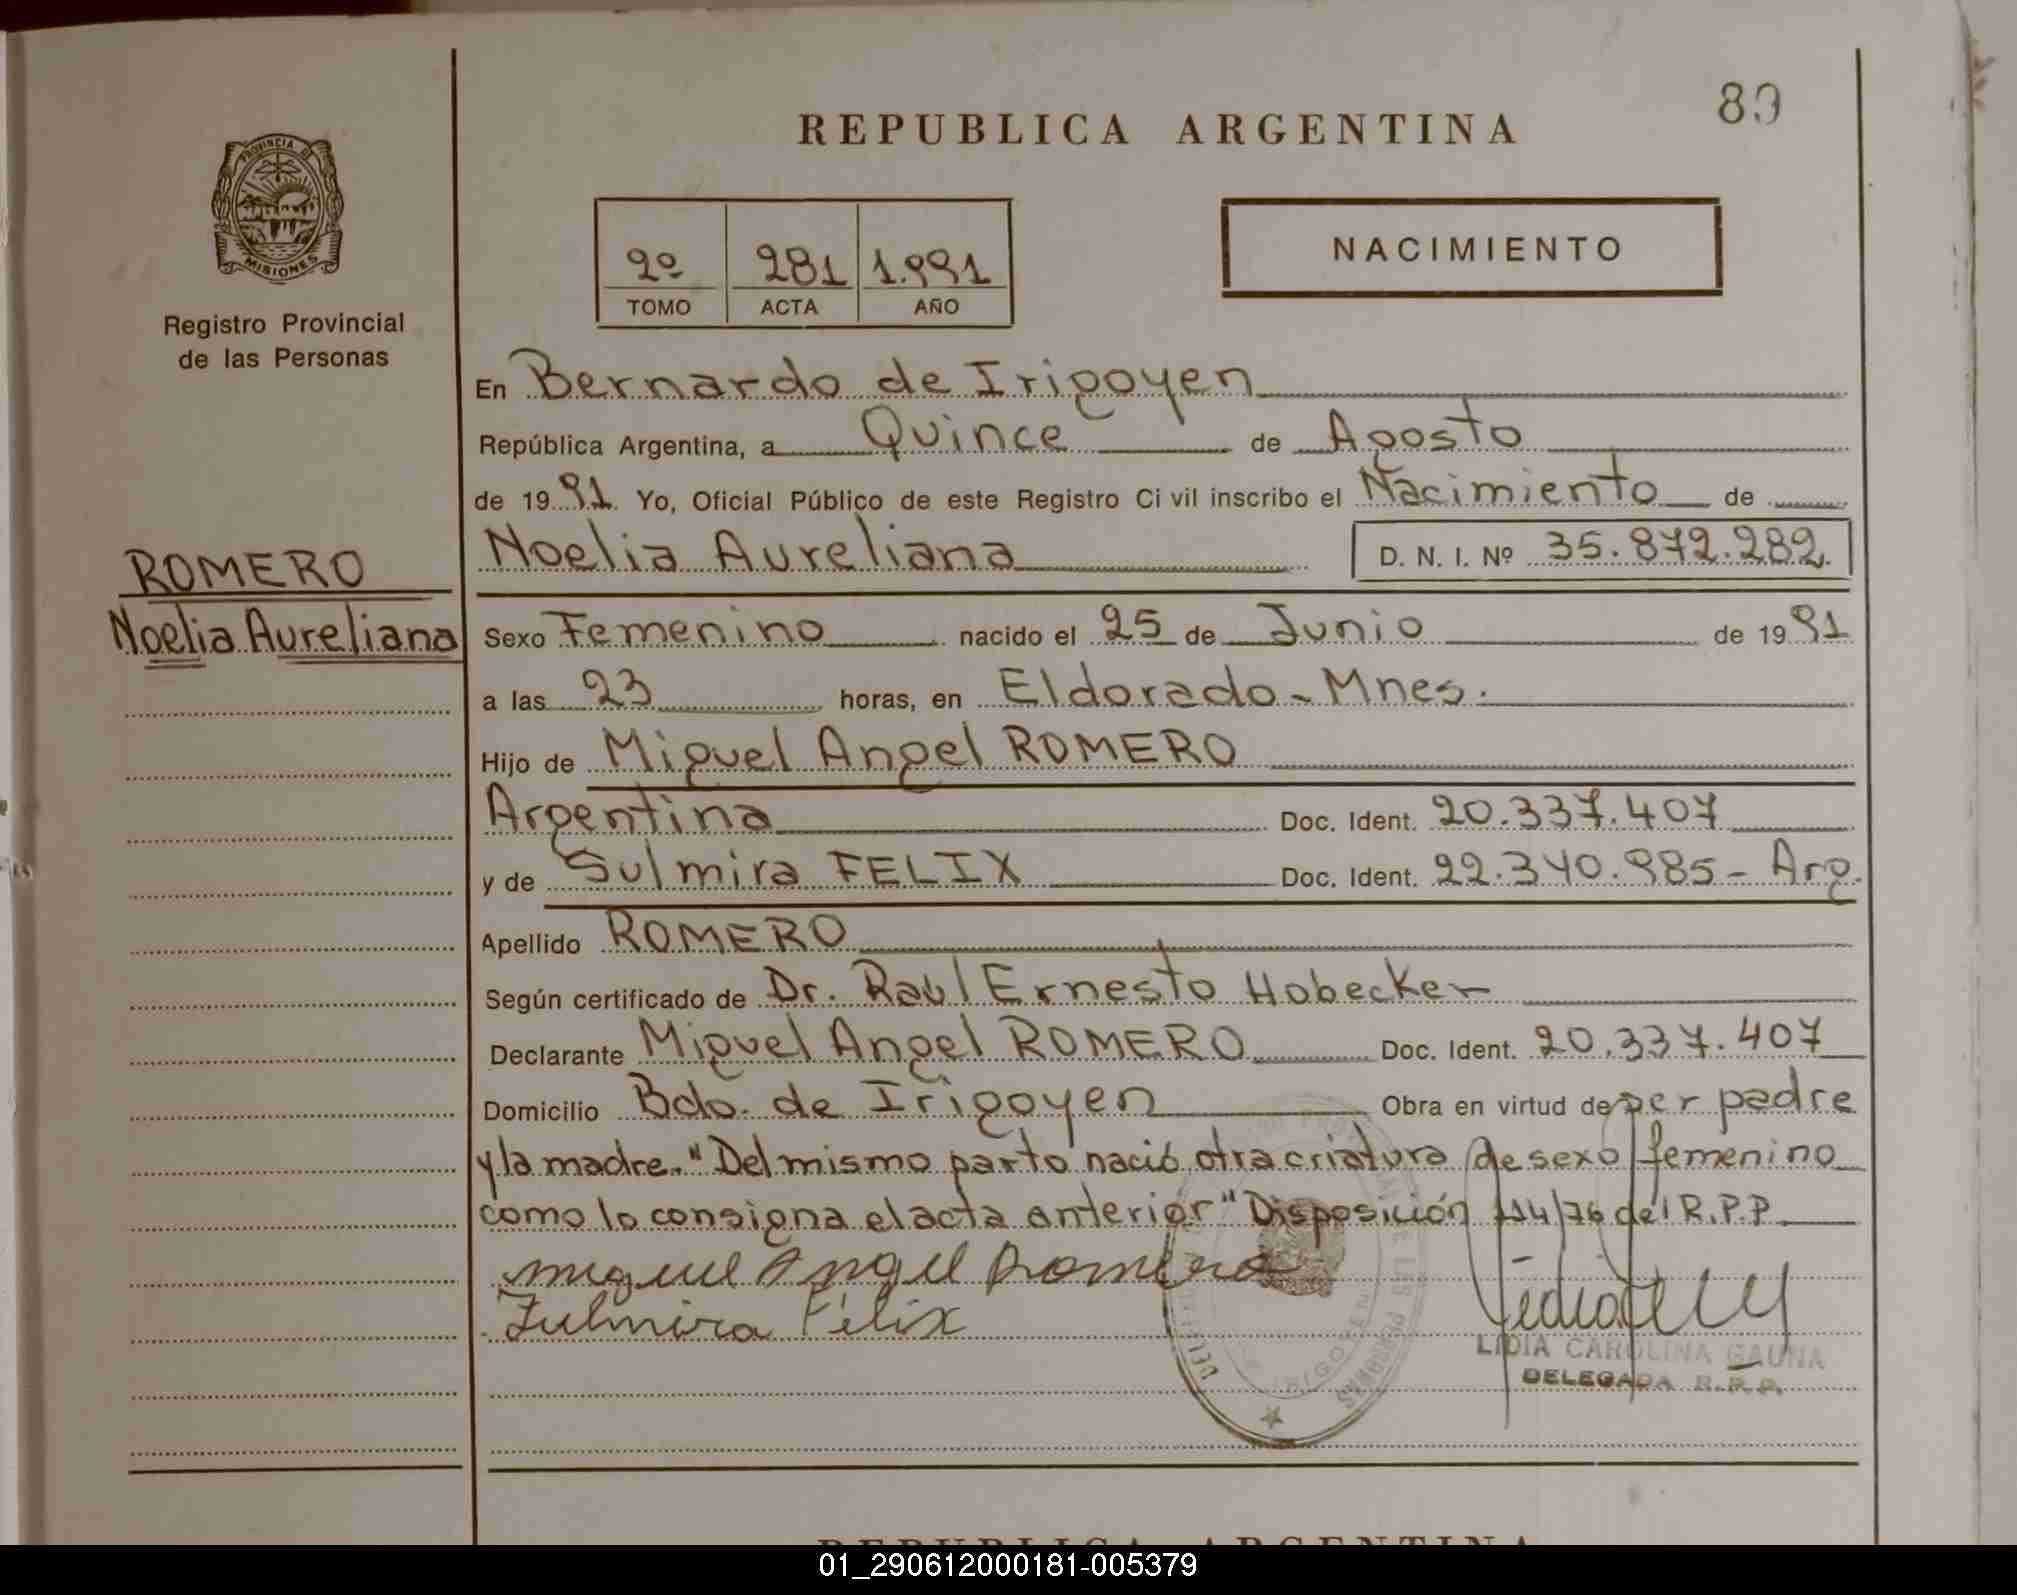 80
REPUBLICA ARGENTINA
PROVINCIA DE
MISIONES
Registro Provincial
de las Personas
2º 281 1.991
TOMO ACTA AÑO
NACIMIENTO
En Bernardo de Irigoyen
República Argentina, a Quince de Agosto
de 19 91. Yo, Oficial Público de este Registro Civil inscribo el Nacimiento de
Noelia Aureliana D. N. I. Nº 35.872.282.
ROMERO
Noelia Aureliana
Sexo Femenino nacido el 25 de Junio de 19 91
a las 23 horas, en Eldorado - Mnes.
Hijo de Miguel Angel ROMERO
Argentina Doc. Ident. 20.337.407
y de Sulmira FELIX Doc. Ident. 22.340.985 - Arg.
Apellido ROMERO
Según certificado de Dr. Raúl Ernesto Hobecker
Declarante Miguel Angel ROMERO Doc. Ident. 20.337.407
Domicilio Bdo. de Irigoyen Obra en virtud de ser padre
y la madre. "Del mismo parto nació otra criatura de sexo femenino
como lo consigna el acta anterior" Disposición 114/76 del R.P.P
Miguel Angel Romero
Zulmira Félix
LIDIA CAROLINA GAUNA
DELEGADA R.P.P.
REPUBLICA ARGENTINA
01_290612000181-005379